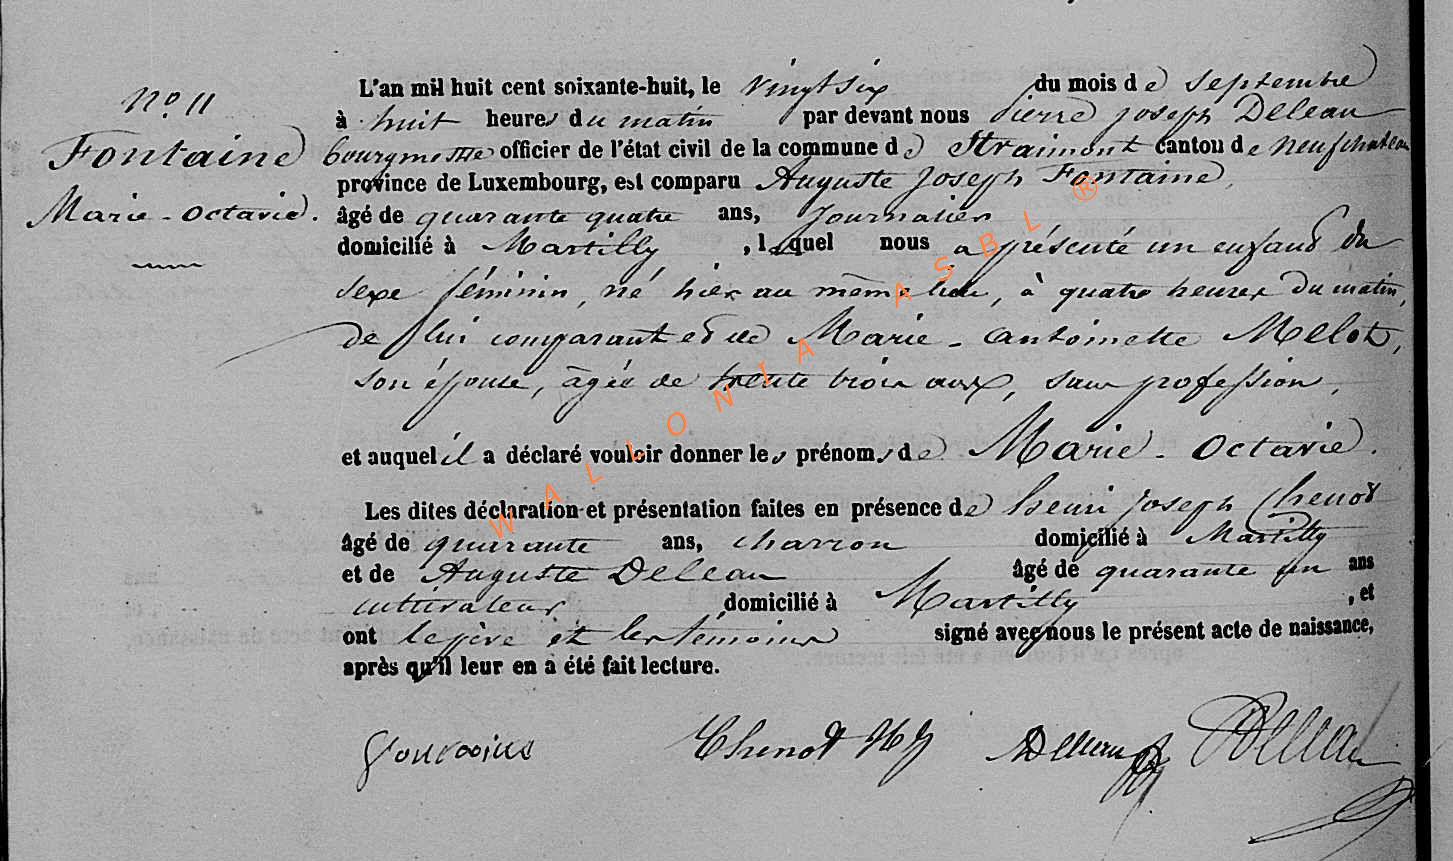 N° 11
Fontaine
Marie-Octavie.
L'an mil huit cent soixante-huit, le vingt six du mois de Septembre
à huit heures du matin par devant nous Pierre Joseph Deleau
bourgmestre officier de l'état civil de la commune de Straimont canton de Neufchateau
province de Luxembourg, est comparu Auguste Joseph Fontaine,
âgé de quarante quatre ans, Journalier
domicilié à Martilly, lequel nous a présenté un enfant du
sexe féminin, né hier au même lieu, à quatre heures du matin,
de lui comparant et de Marie-Antoinette Melot,
son épouse, âgée de trente trois ans, sans profession,
et auquel il a déclaré vouloir donner les prénoms de Marie-Octavie.
Les dites déclaration et présentation faites en présence de henri joseph Chenot
âgé de quarante ans, charron domicilié à Martilly
et de Auguste Deleau âgé de quarante un ans
cultivateur domicilié à Martilly, et
ont le père et les témoins signé avec nous le présent acte de naissance,
après qu'il leur en a été fait lecture.
Chenot hj ADeleau PDeleau
WALLONIA ASBL ®